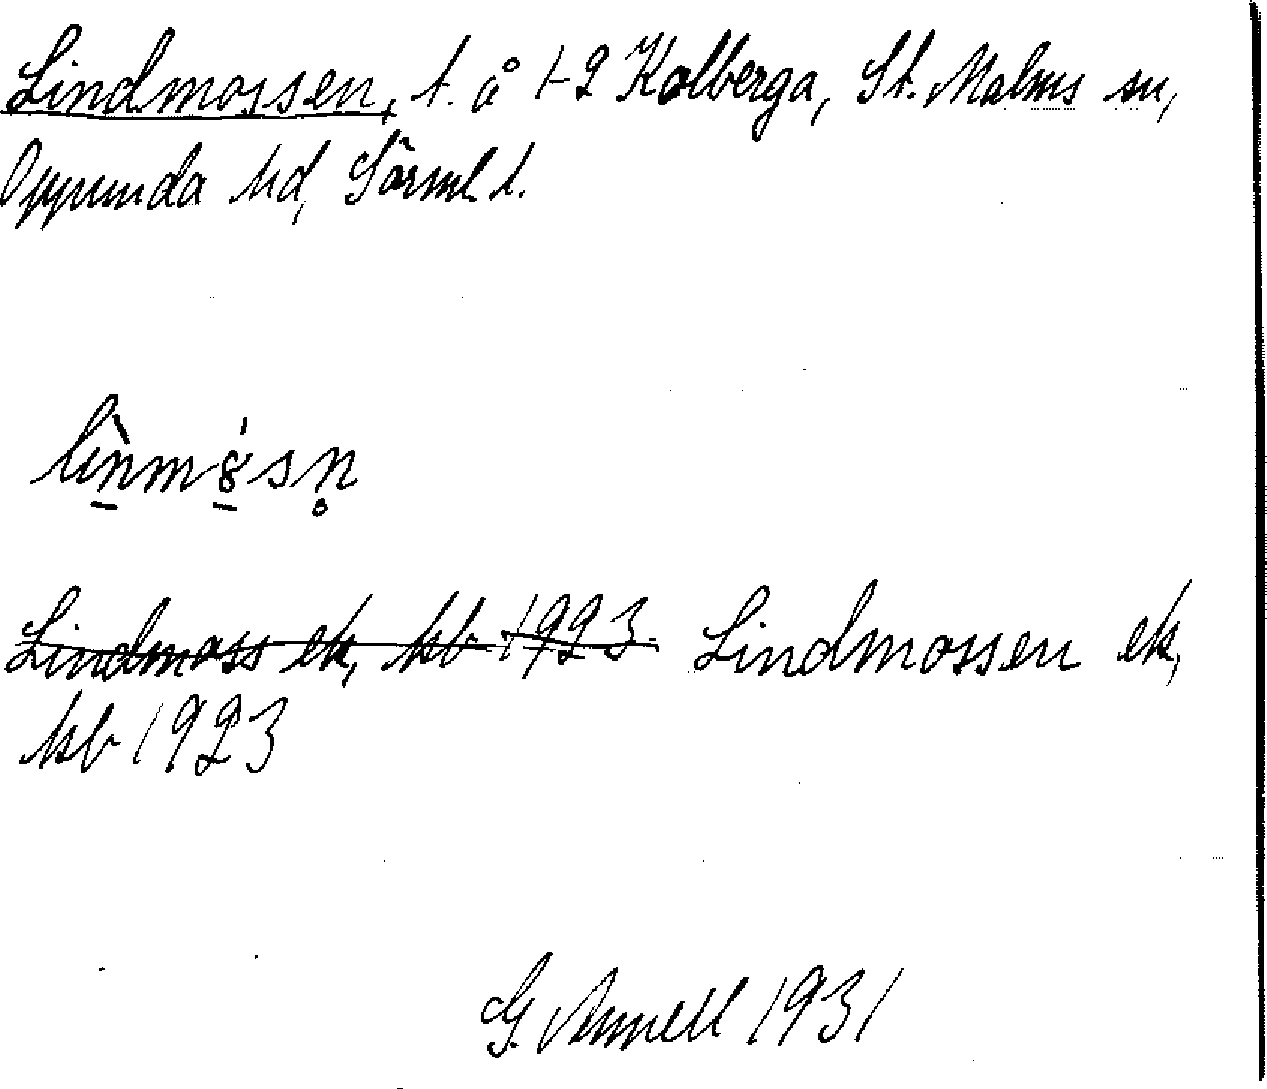 Lindmossen, t. å 1-2 Kolberga, St. Malms sn,
Oppunda hd, Sörml. l.
lìnmǿsn̥
Lindmoss ek, kb 1923. Lindmossen ek,
kb 1923
G. Annell 1931